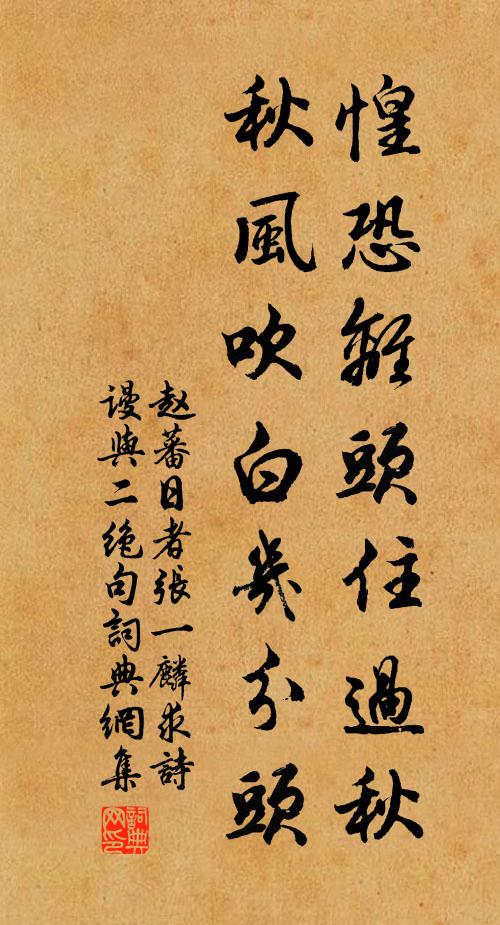 惶恐難頭住過秋
秋風吹白幾分頭
赵蕃日者張一麟求詩
謾與二絶句詞典網集
詞典网印